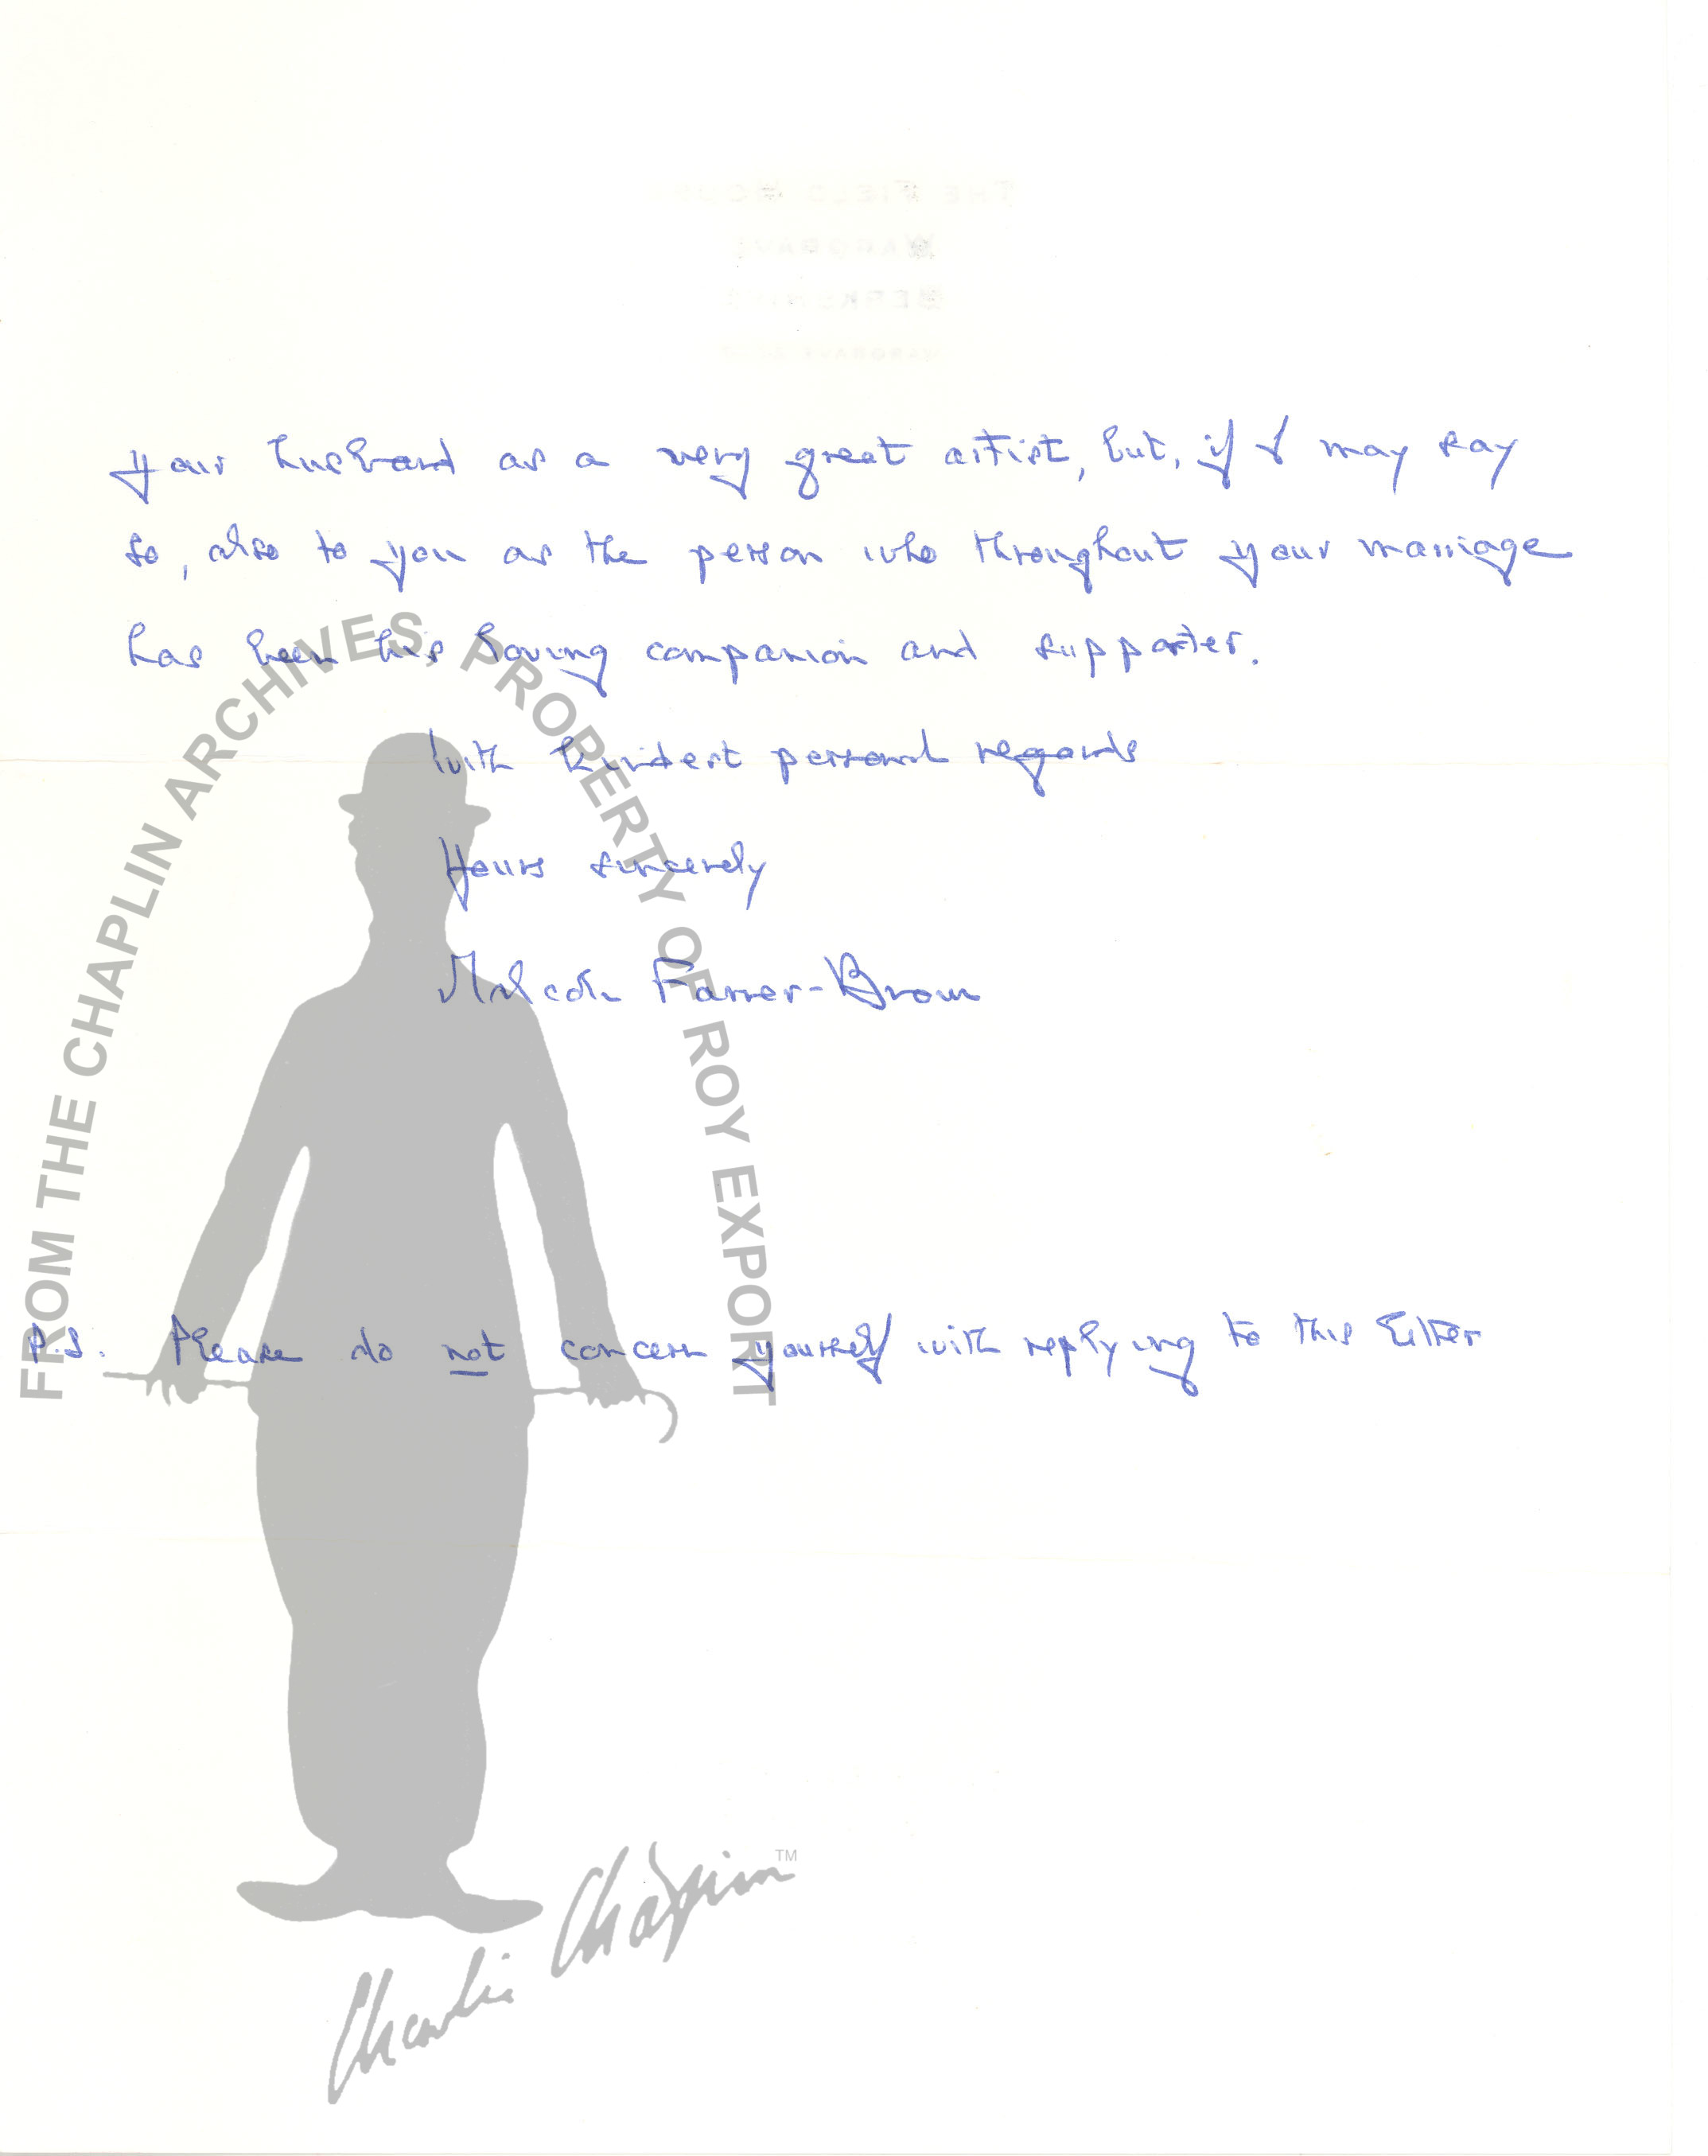 THE FIELD HOUSE
WARGRAVE
BERKSHIRE
WARGRAVE
your husband as a very great artist, but, if I may say
so, also to you as the person who throughout your marriage
has been his loving companion and supporter.
With kindest personal regards
Yours sincerely
Malcolm Farrer-Brown
P.S. Please do not concern yourself with replying to this letter
FROM THE CHAPLIN ARCHIVES, PROPERTY OF ROY EXPORT
Charlie Chaplin TM